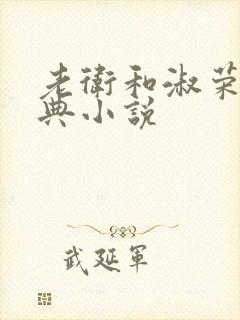 老衛和淑荣
典小説
武延軍